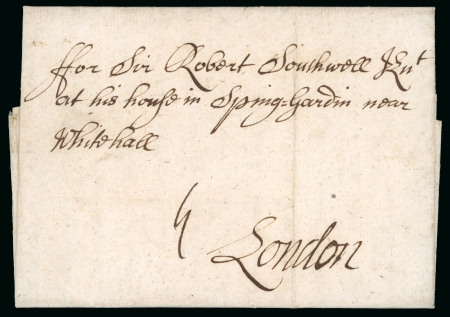 ffor Sir Robert Southwell Knt
at his house in Sping-Gardin near
Whitehall
4
London